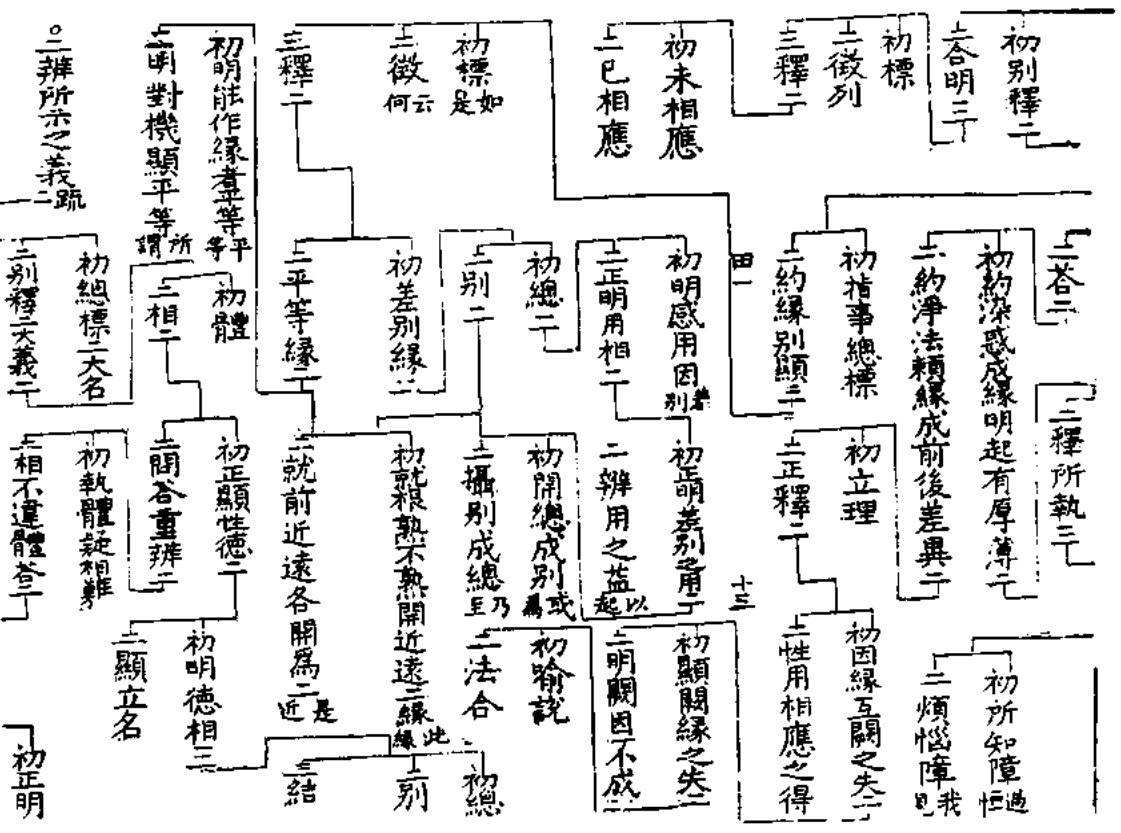 初别釋二
二合明三
初標
二徵列
三釋二
初未相應
二已相應
初標如是
二徵云何
三釋二
初明能作緣者平等平等
二明對機顯平等所謂
○二辨所示之義二疏
二荅二
初約染惑成緣明起有厚薄二
二約淨法賴緣成前後差異二
初指事總標
二約緣别顯三
田一
初明感用因
二正明用相二
初總二
二别二
初差别緣二
二平等緣二
初體
二相二
初總標二大名
二别釋二大義二
二釋所執三
初立理
二正釋二
十三
初正明差别之用二
二辨用之益以起
初開總成别或爲
二攝别成總乃至
初就根熟不熟開近遠二緣此緣
二就前近遠各開爲二是近
初正顯性德二
二問荅重辨二
初執體疑相難
二相不違體荅二
初所知障過恒
二煩惱障我見
初因緣互闕之失二
二性用相應之得
初顯闕緣之失二
二明闕因不成
初喻說
二法合
初總
二别
三結
初明德相三
二顯立名
初正明